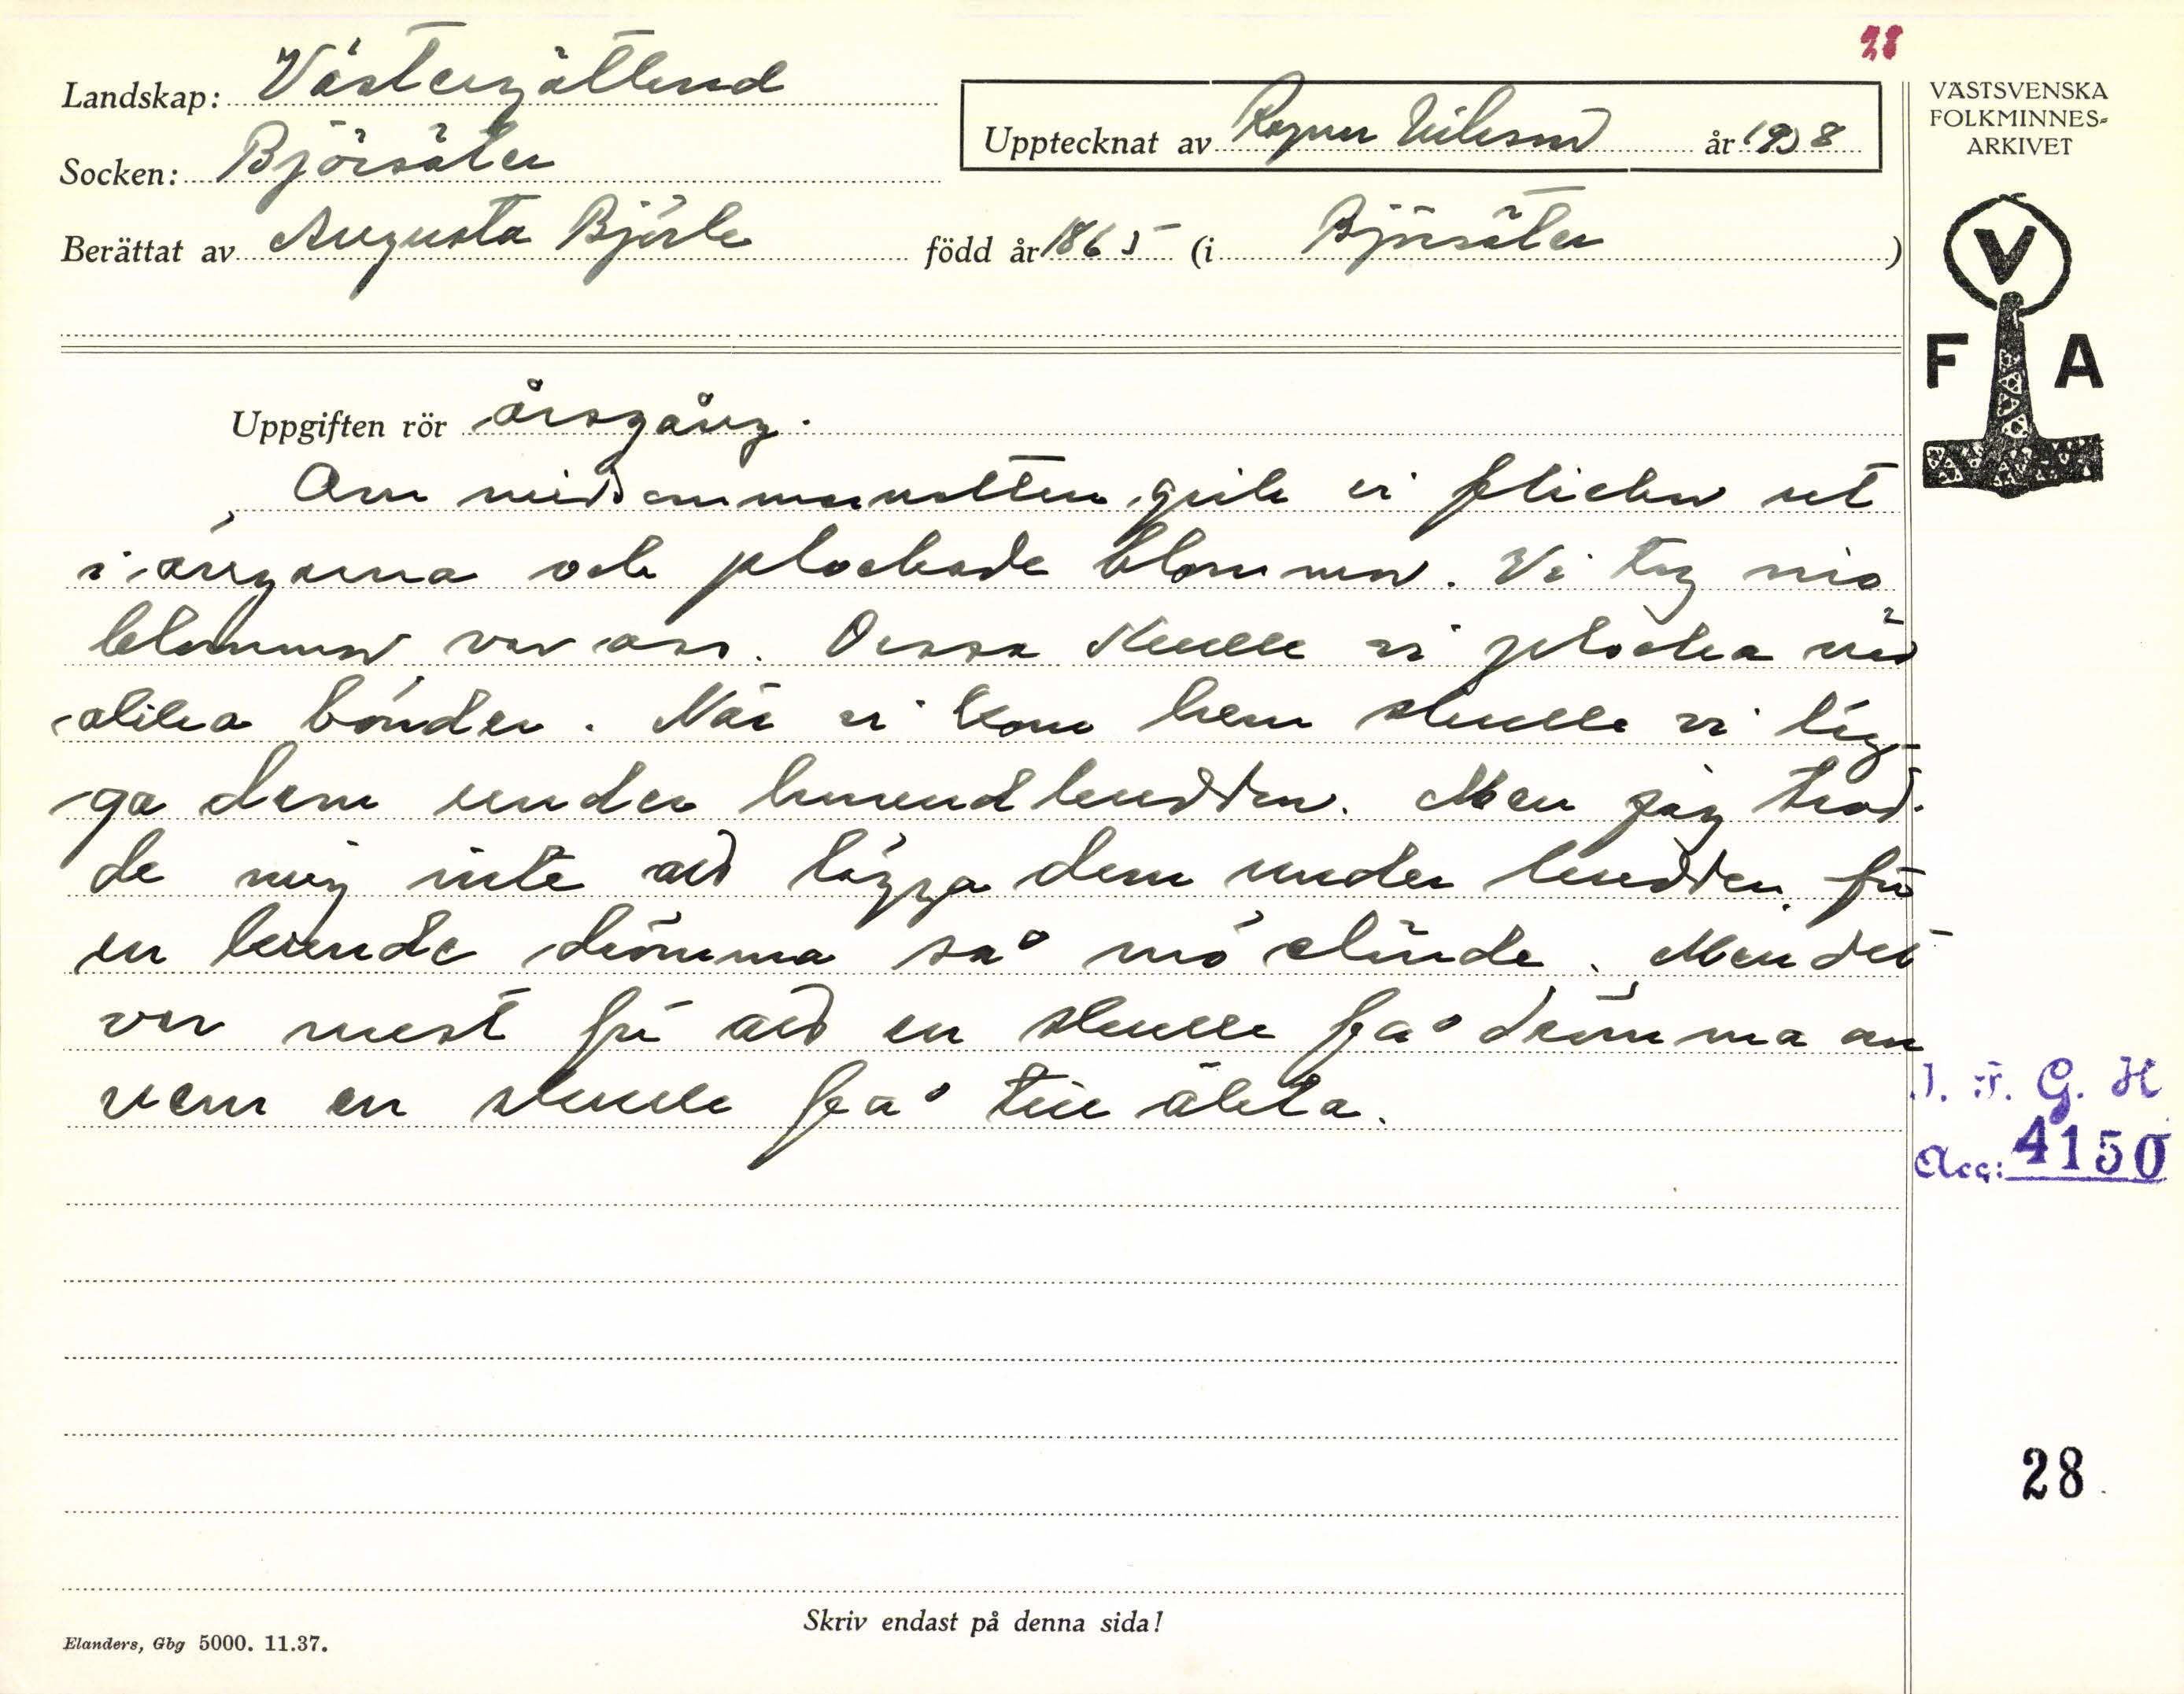 28
Landskap: Västergötland
Upptecknat av Ragnar Nilsson år 1938
VÄSTSVENSKA
FOLKMINNES-
ARKIVET
Socken: Björsäter
Berättat av Augusta Björle född år 1865 (i Björsäter)
V
F A
Uppgiften rör årsgång.
"Om midsommarnatten gick vi flickor ut
i ängarna och plockade blommor. Vi tog nio
blommor var ass. Dessa skulle vi plocka vid
olika bönder. När vi kom hem skulle vi läg-
ga dem under huvudkudden. Men jag trod-
de mig inte att lägga dem under kudden för
en kunde drömma så mö elände. Men det
var mest för att en skulle få drömma om
vem en skulle få till äkta.
I. F. G. H
Acc: 4150
28
Skriv endast på denna sida!
Elanders, Gbg 5000. 11.37.